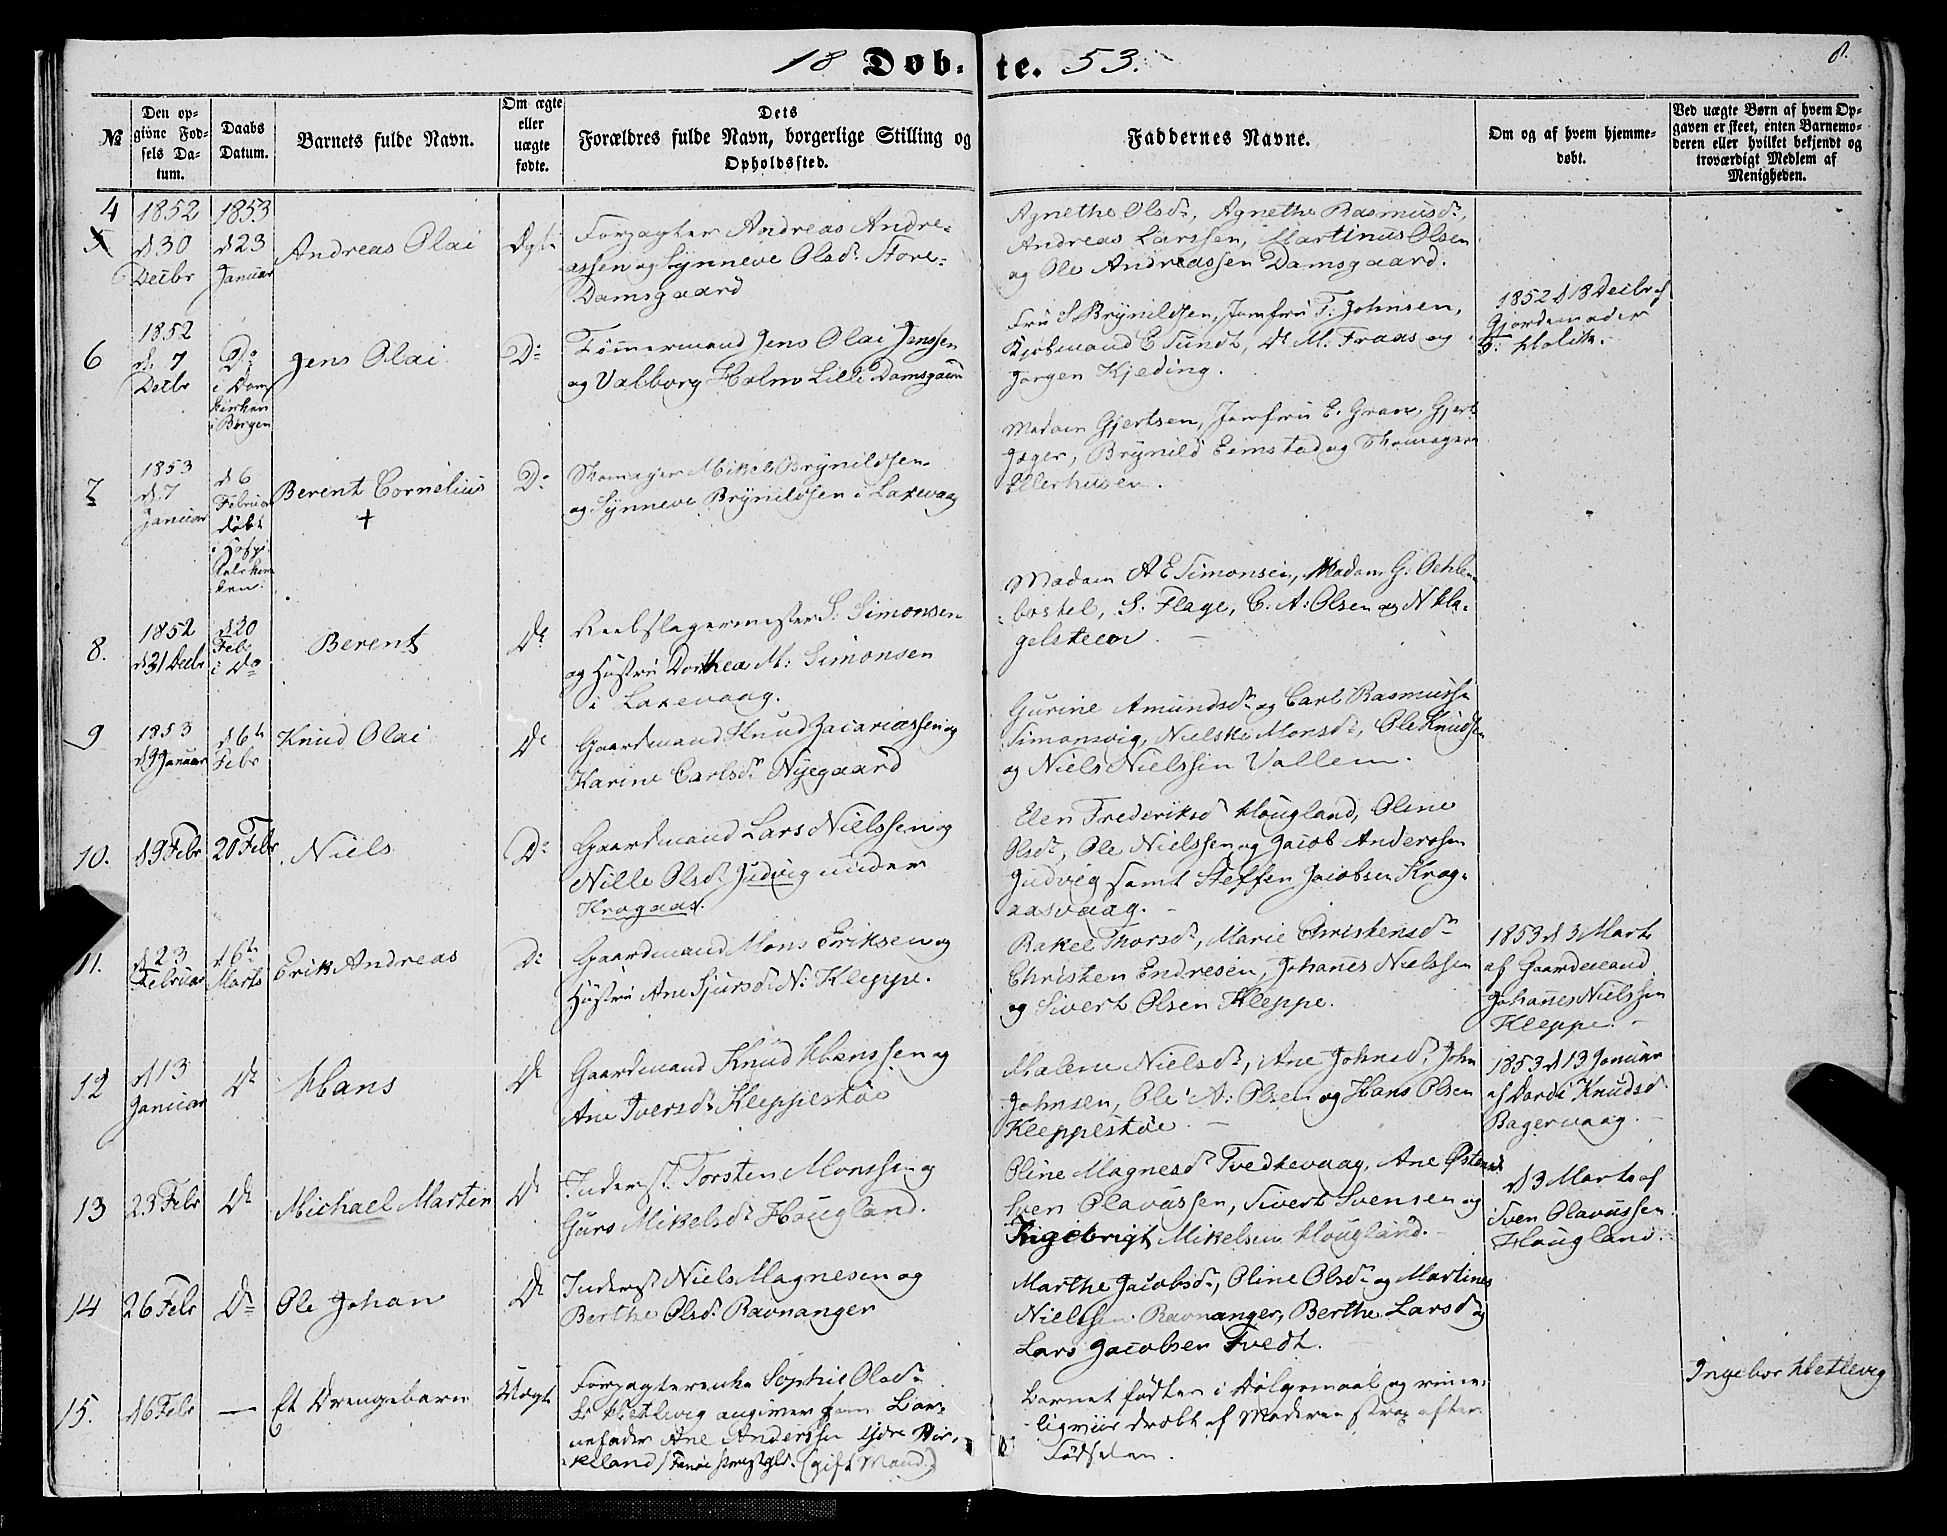 18 Døb-te. 53.
8.
№
Den op-
givne Fød-
sels Da-
tum.
Daabs
Datum.
Barnets fulde Navn.
Om ægte
eller
uægte
fødte.
Dets
Forældres fulde Navn, borgerlige Stilling og
Opholdssted.
Faddernes Navne.
Om og af hvem hjemme-
døbt.
Ved uægte Børn af hvem Op-
gaven er skeet, enten Barnemo-
deren eller hvilket bekjendt og
troværdigt Medlem af
Menigheden.
4
5
1852
d 30
Decbr
1853
d 23
Januar
Andreas Olai
Ægte
Forpagter Andreas Andre-
assen og Synneve Olsdr Store-
Damsgaard
Agnethe Olsdr, Agnethe Rasmusdr,
Andreas Larssen, Martinus Olsen
og Ole Andreassen Damsgaard.
6
1852
d. 7
Decbr
Do
i Dom
kirken
i Bergen
Jens Olai
Do
Tømmermand Jens Olai Jenssen
og Valborg Holm Lille Damsgaard
Fru S. Brynildsen, Jomfru T. Johnsen,
Kjøbmand E Sundt, Do M. Fraas og
Jørgen Kjeding.
1852 d 18 Decbr af
Gjordemoder
7
1853
d. 7
Januar
d 6
Februar
døbt
i Hospi-
talskirk
ken.
Berent Cornelius
+
Do
Skomager Mikel Brynildsen
og Synneve Brynildsen i Laxevaag
Madam Gjertsen, Jomfru E. Gran, Gjert
Jæger, Brynild Eimstad og Skomager
Ellerhusen.
8.
1852
d 31 Decbr
d 20
Feb.
i Do
Berent
Do
Reebslagermester S. Simonsen
og Hustru Dorthea M: Simonsen
i Laxevaag.
Madam A E Simonsen, Madam G. Oehlen-
bostel, S. Flage, C. A: Olsen og N Kla-
gelsteen.
9
1853
d 9 Januar
d 6te
Febr
Knud Olai
Do
Gaardmand Knud Zacariassen og
Karine Carlsdr Nyegaard
Gurine Amundsdr og Carl Rasmussen
Simonsvig, Nielske Monsdr, Ole Knudsen
og Niels Nielssen Vallem.
10.
d 9 Febr
20 Febr
Niels
Do
Gaardmand Lars Nielssen og
Nille Olsdr Judvig under
Krogaas.
Elen Frederiksd Hougland, Oline
Olsdr, Ole Nielssen og Jacob Anderssen
Judvig samt Steffen Jacobsen Krog-
aasvaag.
11.
d 23
Februar
d 6te
Marts
Erik Andreas
Do
Gaardmand Mons Eriksen og
Hustru Ane Sjursdr N: Kleppe.
Rakel Thorsdr, Marie Christensdr
Christen Endresen, Johanes Nielssen
og Sivert Olsen Kleppe.
1853 d 3 Marts
af Gaardmand
Johanes Nielssen
Kleppe.
12
d 13
Januar
Do
Hans
Do
Gaardmand Knud Hanssen og
Ane Iversdr Kleppestøe
Malene Nielsdr, Ane Johnsdr, John
Johnsen, Ole A: Olsen og Hans Olsen
Kleppestøe
1853 d 13 Januar
af Dorde Knudsd
Bagervaag.
13
23 Febr
Do
Michael Martin
Do
Inderst Torsten Monssen og
Guro Mikelsdr Hougland.
Oline Magnesdr Tvedtevaag, Ane Østensd
Sven Olavussen, Sivert Svensen og
Ingebrigt Mikelsen Hougland.
d 3 Marts af
Sven Olavussen
Hougland.
14
26 Febr
Do
Ole Johan
Do
Inderst Niels Magnesen og
Berthe Olsdr Ravnanger
Marthe Jacobsdr, Oline Olsdr og Martines
Nielssen Ravnanger, Berthe Larsd og
Lars Jacobsen Tvedt.
15.
d 6 Febr
—
Et Drengebarn
Uægt
Forpagterenke Sophie Olsdr
Hetlevig angiver som Bar-
nefader Ane Anderssen
(gift Mand)
Barnet født i Dølgsmaal og rime-
ligviis dræbt af Moderen strax efter
Fødselen.
Ingebor Hetlevig